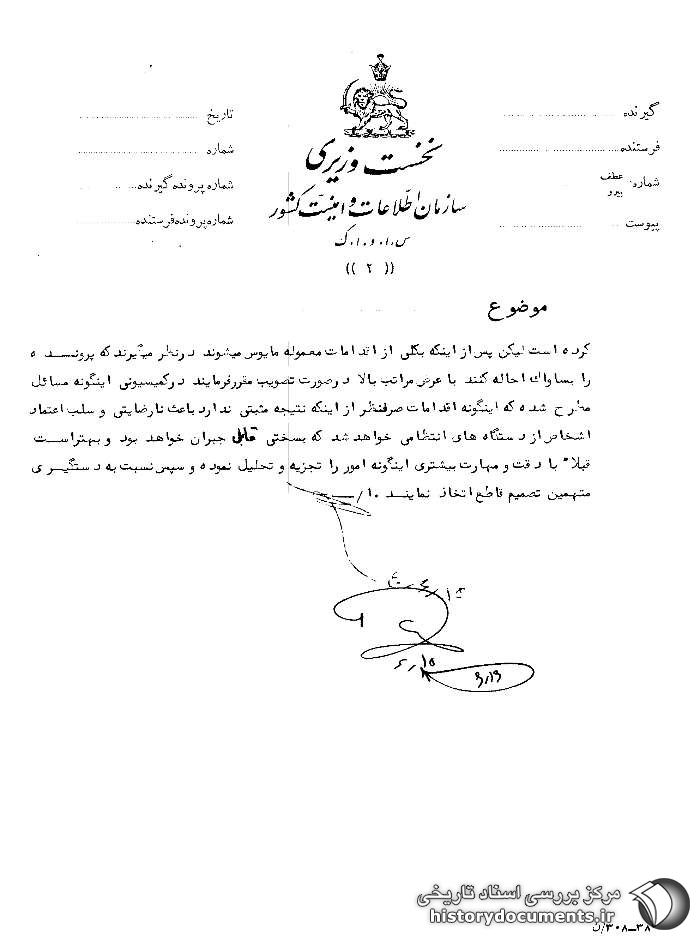 نخست وزیری
سازمان اطلاعات و امنیت کشور
س.ا.و.ا.ک
(( ۲ ))
گیرنده
فرستنده
شماره عطف پیرو
پیوست
تاریخ
شماره
شماره پرونده گیرنده
شماره پرونده فرستنده
موضوع
کرده است لیکن پس از اینکه بکلی از اقدامات معموله مایوس میشوند درنظر میگیرند که پرونـــده
را بساواک احاله کنند با عرض مراتب بالا درصورت تصویب مقررفرمایند درکمیسیونی اینگونه مسائل
مطرح شده که اینگونه اقدامات صرفنظر از اینکه نتیجه مثبتی ندارد باعث نارضایتی و سلب اعتماد
اشخاص از دستگاه های انتظامی خواهد شد که بسختی قابل جبران خواهد بود و بهتراست
قبلاً با دقت و مهارت بیشتری اینگونه امور را تجزیه و تحلیل نموده و سپس نسبت به دستگیـری
متهمین تصمیم قاطع اتخاذ نمایند ۱۰/
مرکز بررسی اسناد تاریخی
historydocuments.ir